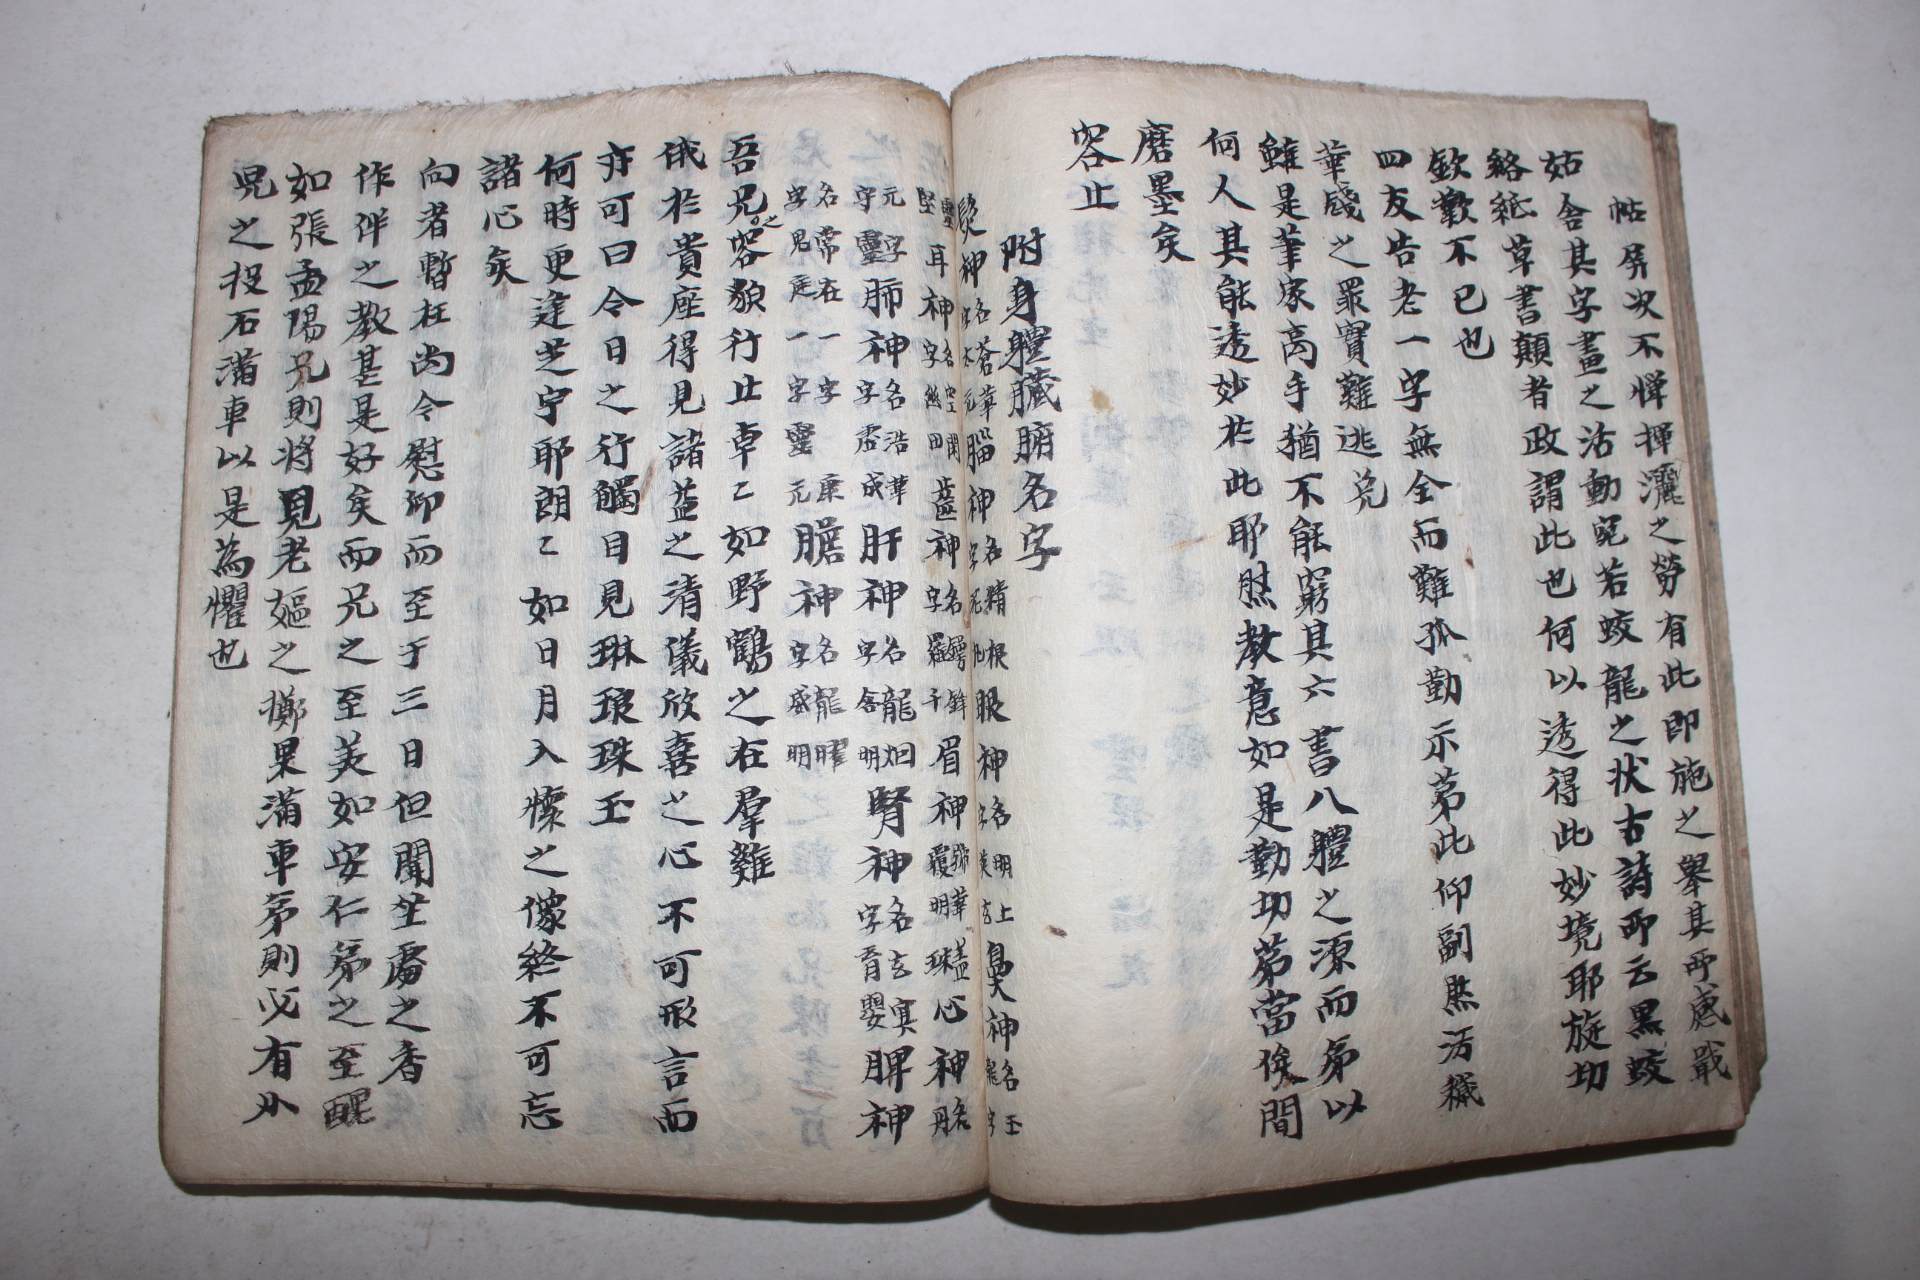 帖屛次不憚揮灑之勞有此即施之擧其所感戰
姑舍其字畫之活動宛若蛟龍之狀古詩所云黑蛟
絡紙草書顚者政謂此也何以透得此妙境耶旋切
欽歎不已也
四友告老一字無全而難孤勤示苐此仰副照活穢
華牋之罪實難逃兌
雖是筆家高手猶不能窮其六書八體之源而弟以
何人其能透妙於此耶照教意如是勤切苐當俟間
磨墨矣
容止
附身體臟腑名字
髮神名蒼華字太元腦神名精根字泥丸眼神名明上字英玄鼻神名玉壟字
靈堅耳神名空閑字幽田齒神名崿鋒字羅千眉神名華盖字覆明心神名丹
元字守靈肺神名浩華字虛成肝神名龍烟字含明腎神名玄冥字育嬰脾神
名常在字䰟庭一字康一字靈元膽神名龍曜字威明
吾兄之容貌行止卓〻如野鶴之在羣雞
俄於貴座得見諸益之淸儀欣喜之心不可形言而
亦可曰今日之行觸目見琳琅珠玉
何時更逢芝宇耶朗〻如日月入懷之像終不可忘
諸心矣
向者暫枉尚今慰仰而至于三日但聞坐處之香
作伴之敎甚是好矣而兄之至美如安仁弟之至醜
如張孟陽兄則將見老嫗之擲果滿車弟則必有小
兒之投石滿車以是為懼也